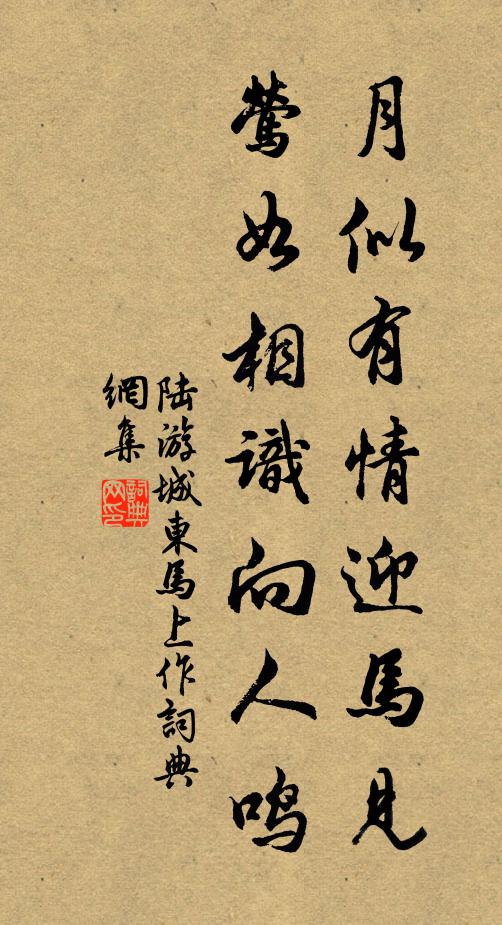 月似有情迎馬見
鶯如相識向人鳴
陸游城東馬上作詞典
網集
詞典
网印